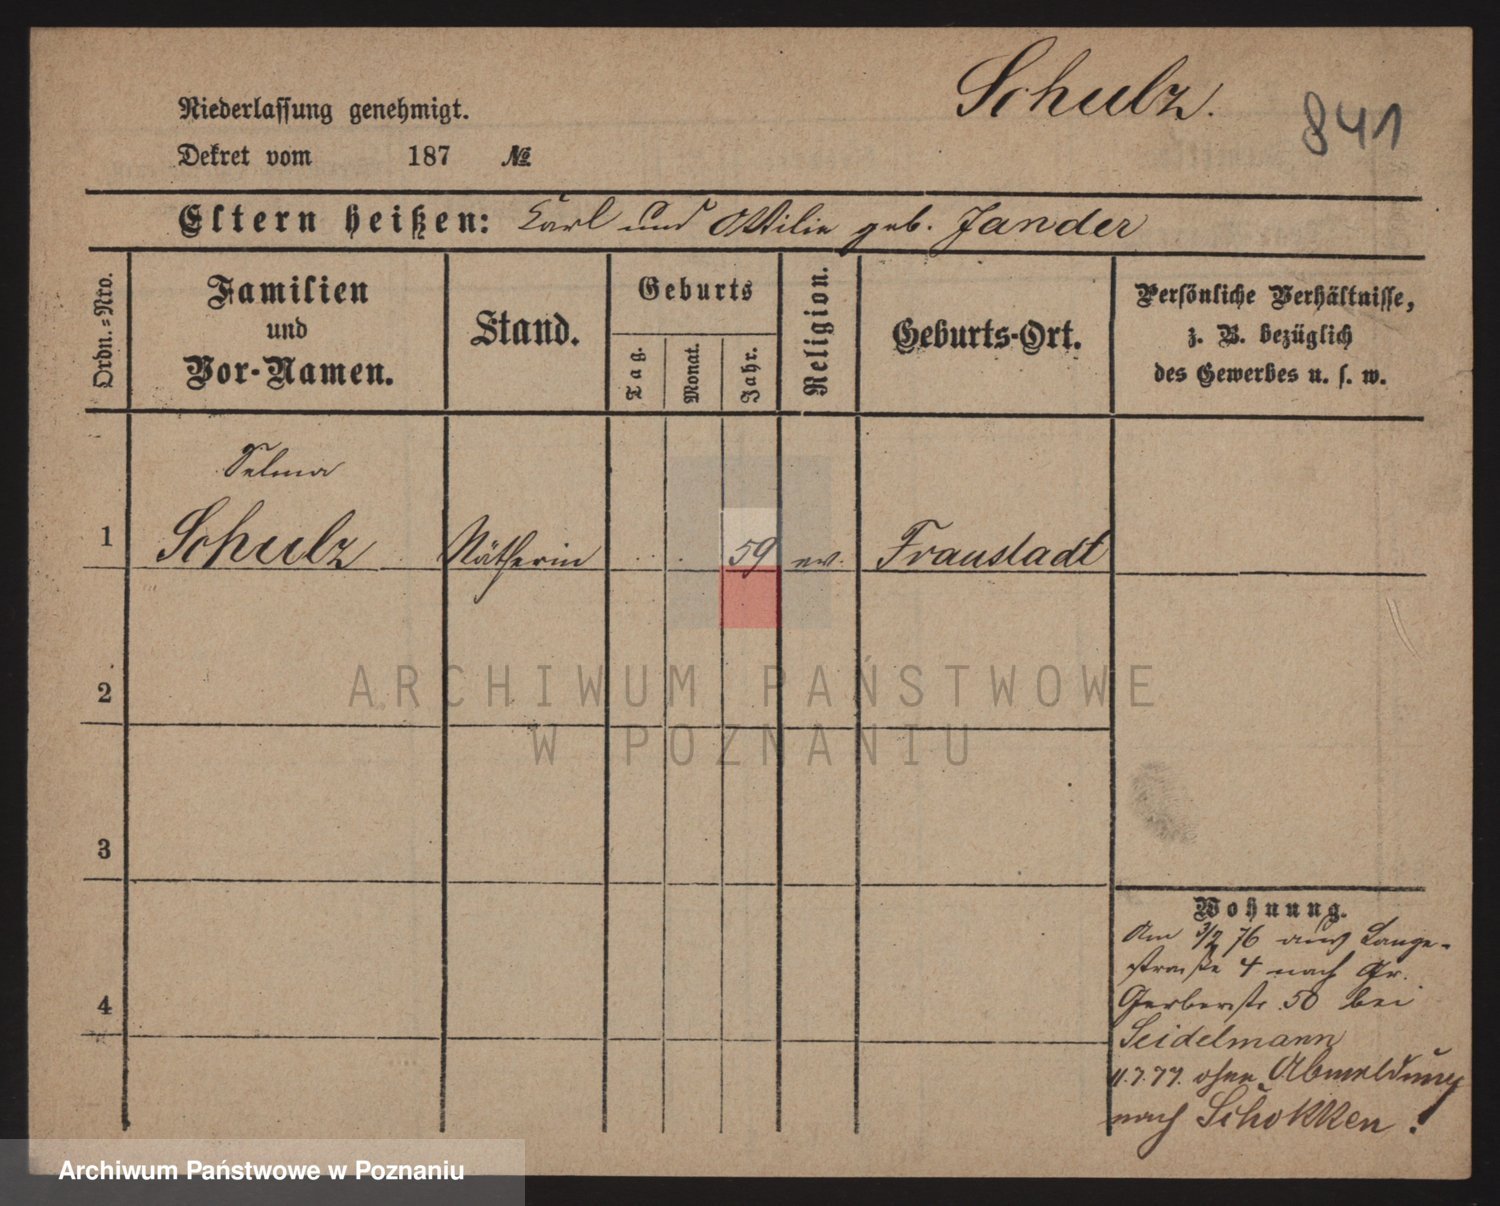 Schulz.
841
Niederlassung genehmigt.
Dekret vom 187 №
Eltern heißen: Carl und Ottilie geb. Jander
Ordn.=Nro.
Familien
und
Vor-Namen.
Stand.
Geburts
Tag.
Monat.
Jahr.
Religion.
Geburts-Ort.
Persönliche Verhältnisse,
z. B. bezüglich
des Gewerbes u. s. w.
Selma
1 Schulz Nätherin . . 59 ev. Fraustadt
2
ARCHIWUM PAŃSTWOWE
W POZNANIU
3
4
Wohnung.
Am 3/2 76 aus Lange-
straße 4 nach Gr.
Gerberstr. 50 bei
Seidelmann
11.7.77. ohne Abmeldung
nach Schokken.
Archiwum Państwowe w Poznaniu